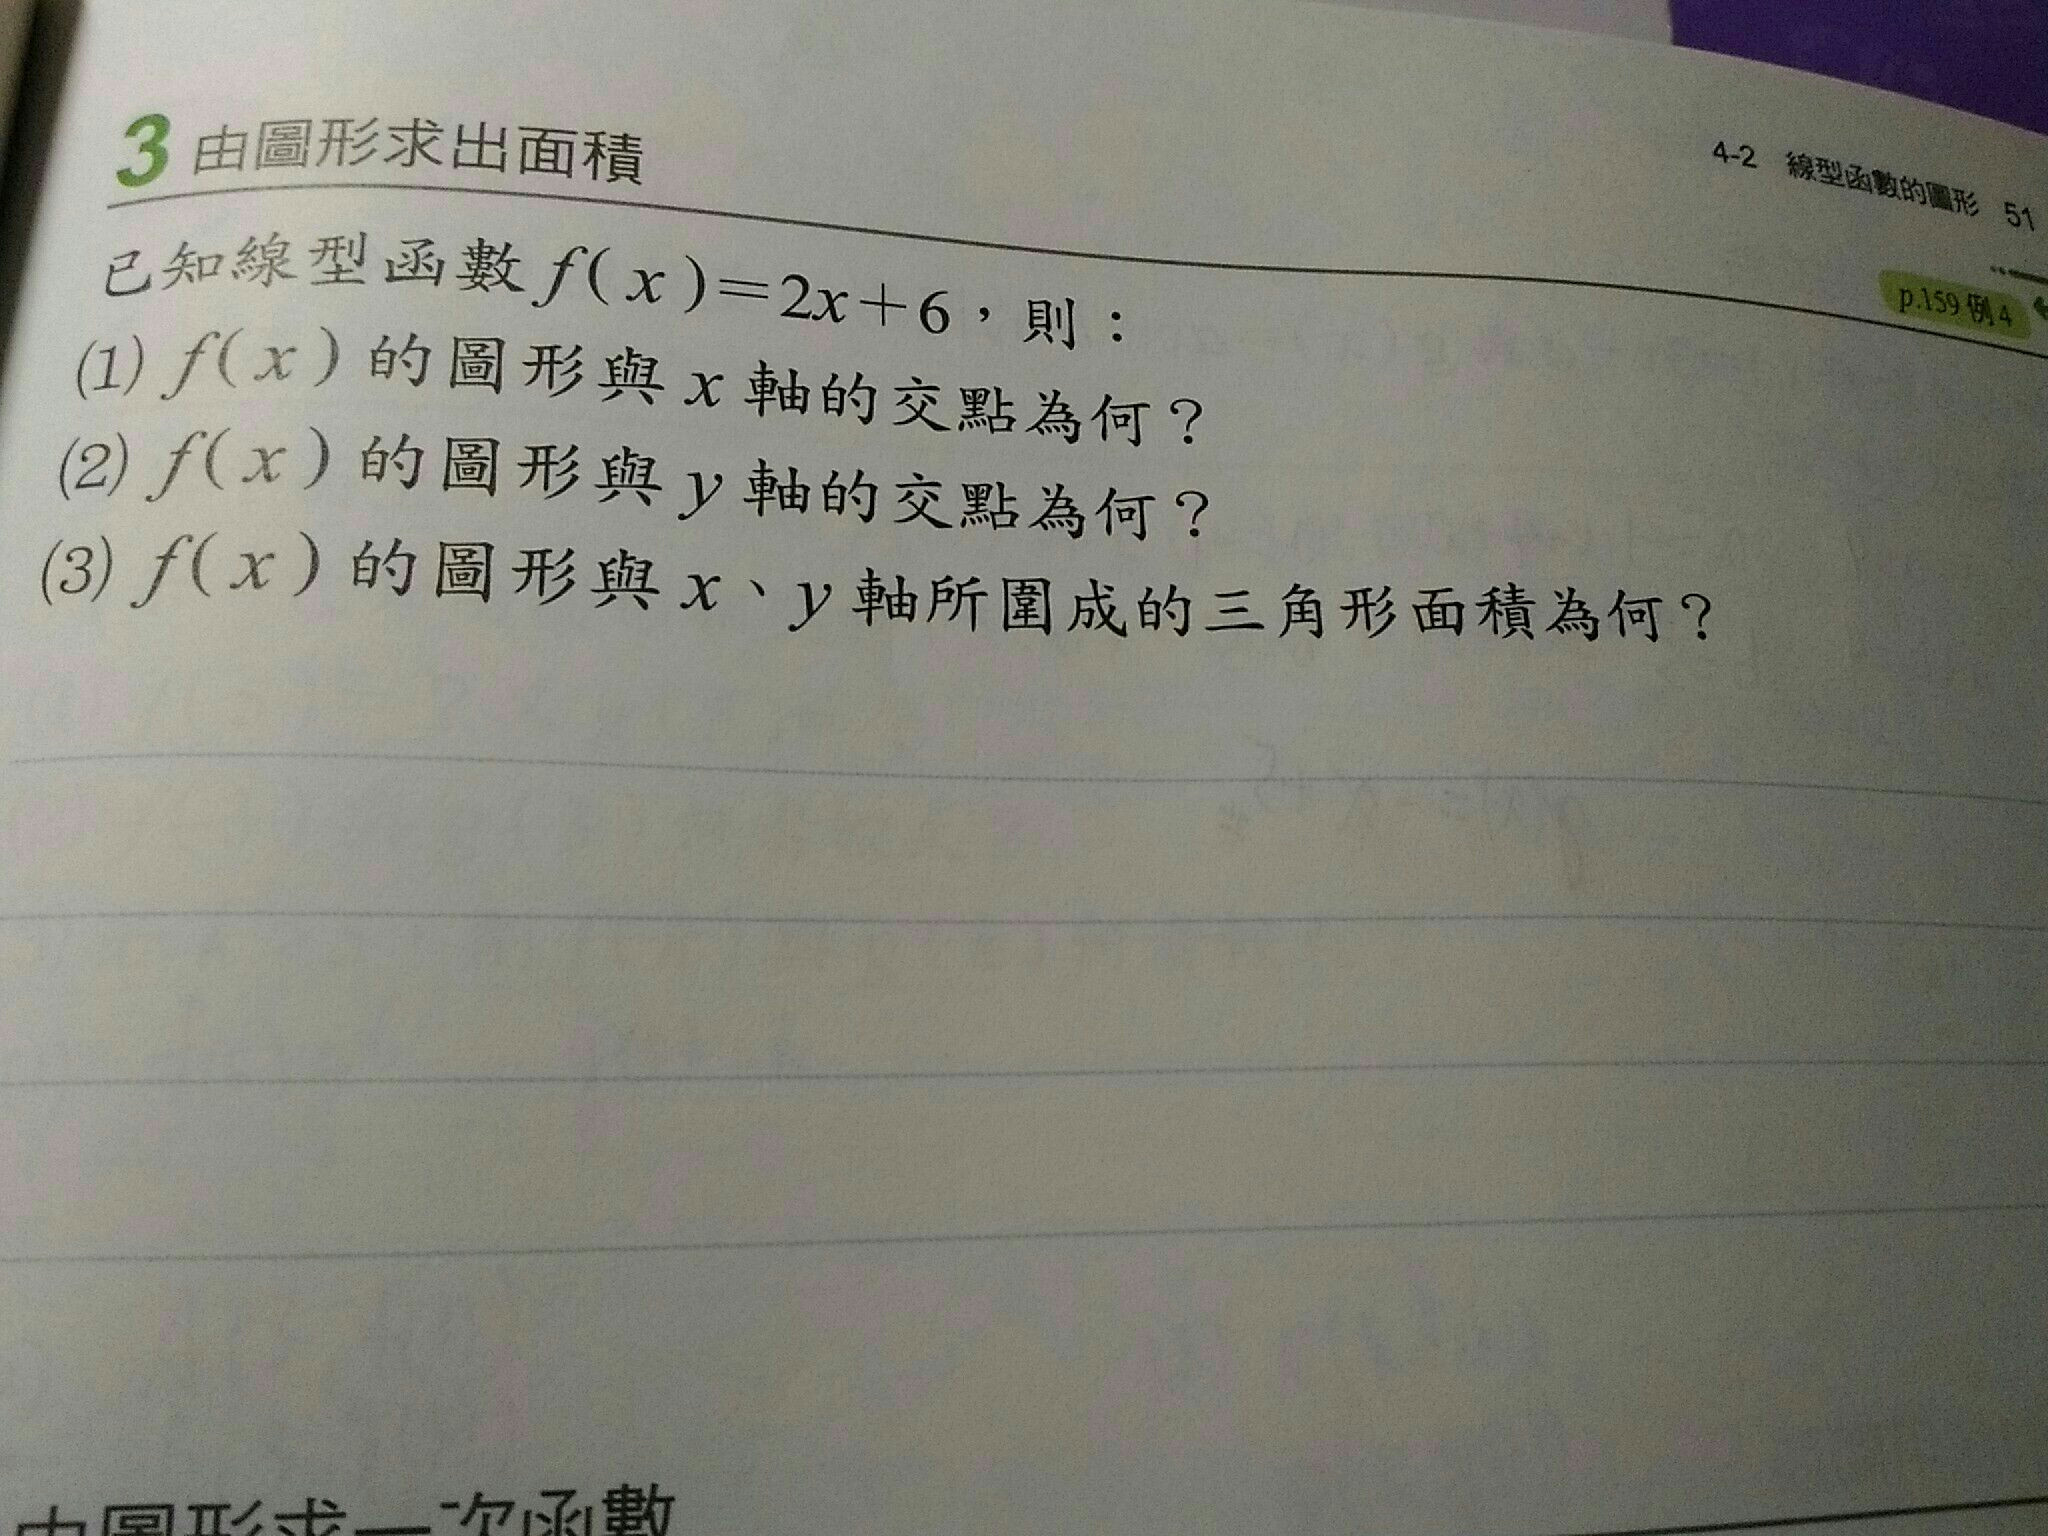 4-2 線型函數的圖形 51
3 由圖形求出面積
p.159 例4
已知線型函數 f(x)=2x+6，則：
(1) f(x)的圖形與 x 軸的交點為何？
(2) f(x)的圖形與 y 軸的交點為何？
(3) f(x)的圖形與 x、y 軸所圍成的三角形面積為何？
由圖形求一次函數